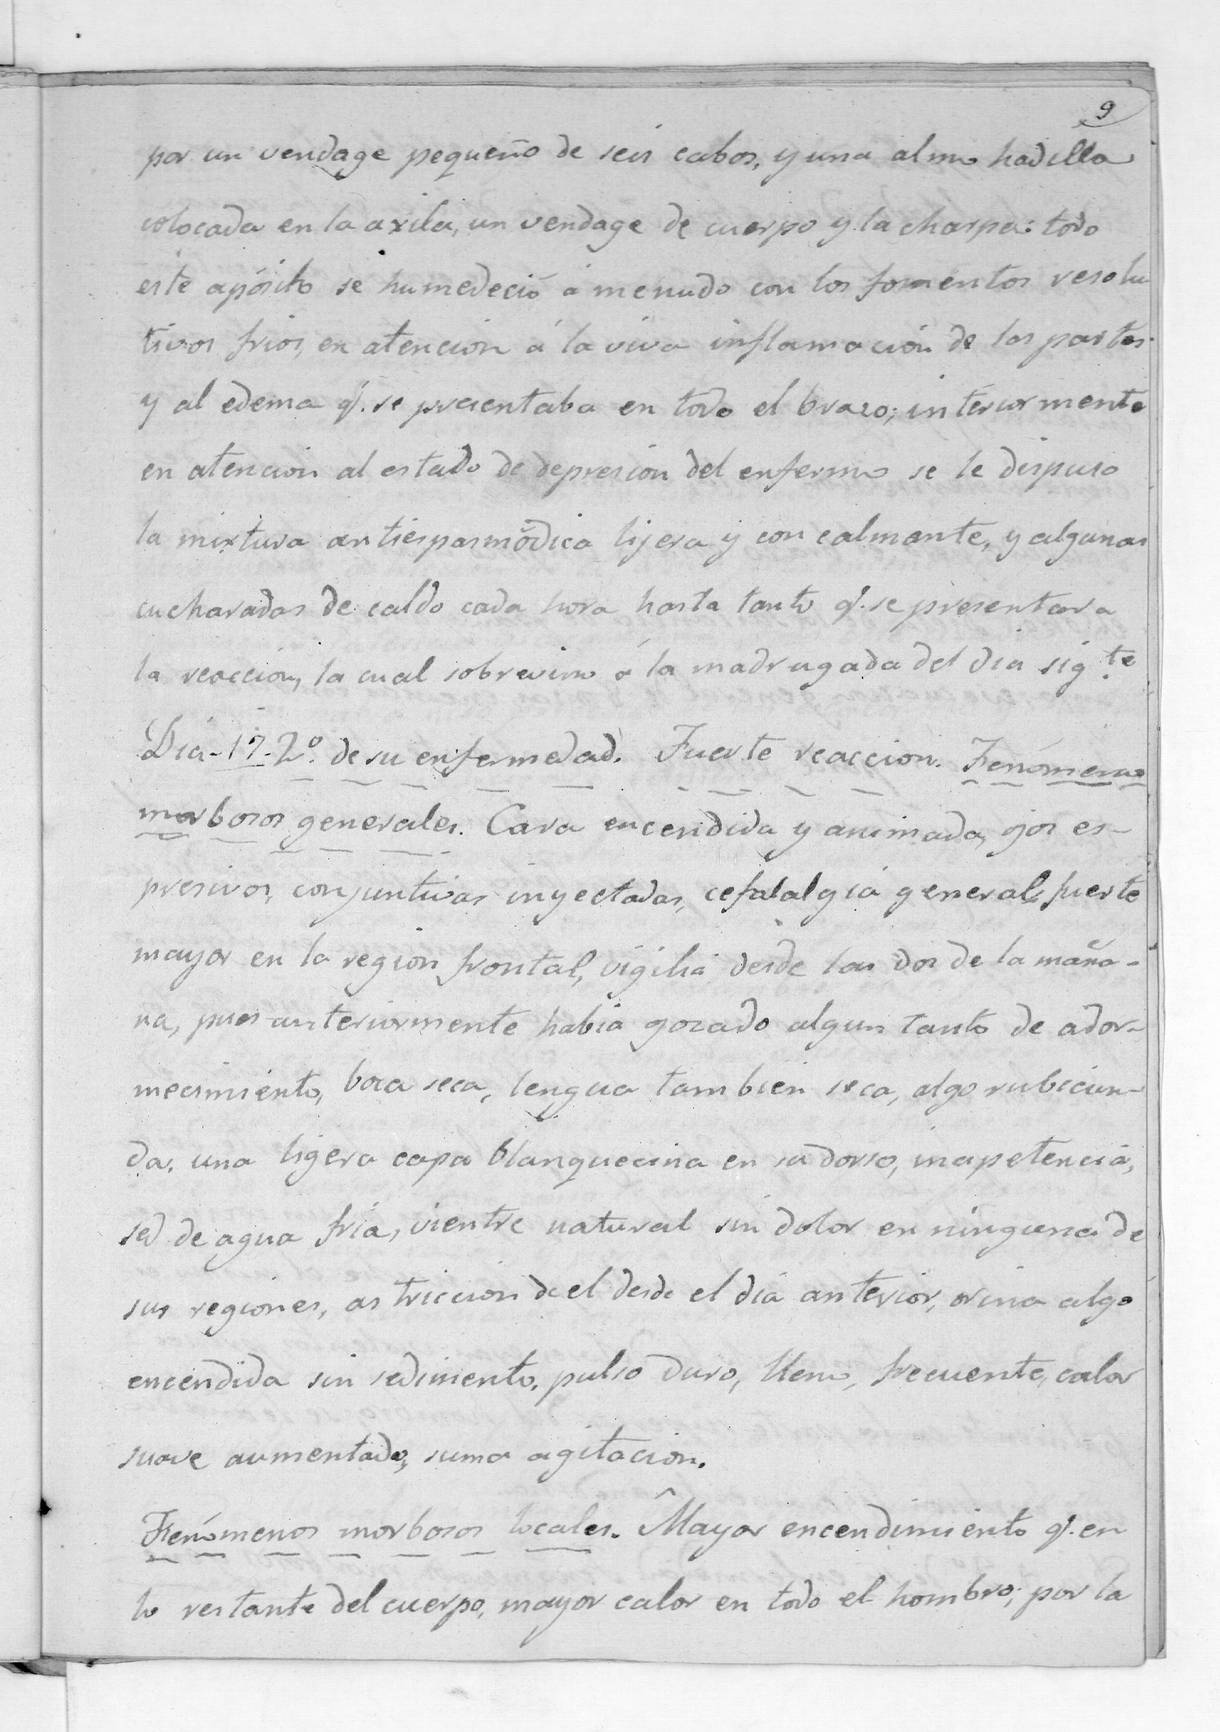 9
por un vendage pequeño de seis cabos, y una almohadilla
colocada en la axila, un vendage de cuerpo y la charpa: todo
este apósito se humedeció á menudo con los fomentos resolu
tivos frios, en atencion á la viva inflamación de las partes
y al edema q.e se presentaba en todo el brazo; interiormente
en atencion al estado de depresion del enfermo se le dispuso
la mixtura antiespasmódica lijera y con calmante, y algunas
cucharadas de caldo cada hora hasta tanto q.e se presentara
la reaccion, la cual sobrevino á la madrugada del dia sig.te
Dia-17-2º. de su enfermedad. Fuerte reaccion. Fenómenos
morbosos generales. Cara encendida y animada, ojos es-
presivos, conjuntivas inyectadas, cefalalgia general fuerte
mayor en la region frontal, vigilia desde las dos de la maña-
na, pues anteriormente habia gozado algun tanto de ador-
mecimiento, boca seca, lengua tambien seca, algo rubicun-
da, una ligera capa blanquecina en su dorso, inapetencia,
sed de agua fria, vientre natural sin dolor en ninguna de
sus regiones, astriccion de el desde el dia anterior, orina algo
encendida sin sedimento, pulso duro, lleno, frecuente, calor
suave aumentado, suma agitacion.
Fenómenos morbosos locales. Mayor encendimiento q.e en
lo restante del cuerpo, mayor calor en todo el hombro; por la